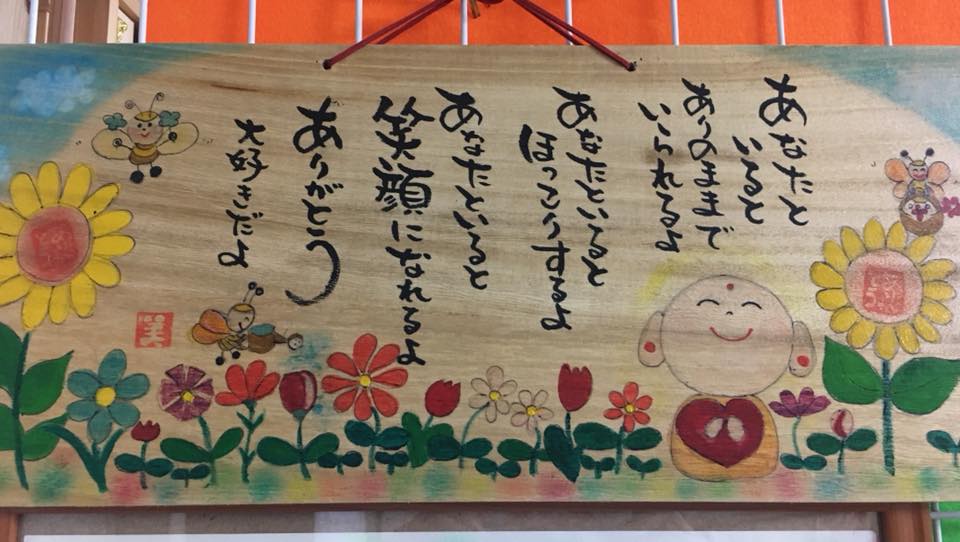 あなたと
いると
ありのままで
いられるよ
あなたといると
ほっこりするよ
あなたといると
笑顔になれるよ
ありがとう
大好きだよ